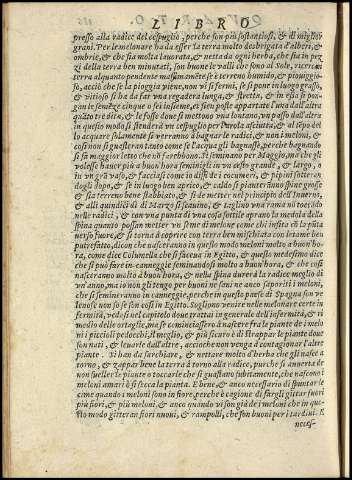 LIBRO
presso alla radice del cespuglio, perche son piu sostantiosi, & di miglior
grani. Per le melonare ha da esser la terra molto desbrigata d'alberi, &
ombrie, & che sia molta lauorata, & netta da ogni herba, che sia in pez
zi della terra ben minutati, son buone le valli che sono al Sole, ricercan
terra alquanto pendente massimamẽte se è terreno humido, et piouiggio
so, acciò che se la pioggia piene, non vi si fermi, se si pone in luogo grasso,
& vitioso si ha da far vna regadera lunga, & stretta, & in essa si pon
gan le semẽze cinque o sei insieme, et sien poste appartate l'una dall'altra
quatro dita, & le fosse done si mettono vna lontano, vn passo dall'altra
in questo modo si stenderà vn cespuglio per vn'ola asciutta, & al tẽpo del
lo acquare solamente si verranno à bagnare le radici, & non i meloni, &
cosi non si guasteran tanto come se l'acqua gli bagnasse, perche bagnando
si fa maggior letto che nõ farebbono. Si seminano per Maggio, ma che gli
volesse hauer piu à buon'hora seminigli in vn cesto grande, & largo, o
in vn grã vaso, & facciasi come io dissi de i cocumeri, & pipini sotteran
dogli dopo, & se in luogo ben aprico, & caldo si pianteranno spine grosse
& sia terreno bene stabbiato, & si de metter nel principio dell'inuerno,
& alli quindici dì di Marzo si seminino, & taglino vna rama nõ toccando
nelle radici, & con vna punta di vna cosa sottile aprano la medola della
spina quanto possan metter vn seme di melone come chi insita cõ la pũta
verso fuore, & si torna à coprire con terra ben mischiata con letame ben
putrefatto, dicon che nasceranno in questo modo meloni molto a buon'ho
ra, come dice Columella che si faceua in Egitto, & questo medesimo dice
che si può fare in canneggie seminandosi molto a buon'hora, & che cosi
nasceranno molto à buon'hora, & nella spina durerà la radice meglio di
vn'anno, ma io non gli tengo per buoni ne sani ne anco saporiti i meloni,
che si semineranno in canneggie, perche in questa parte di Spagna son ve
lenose non so se son cosi in Egitto. Sogliono venire nelle melonare certe in
fermità, vedasi nel capitolo doue trattai in generale dell'infermità, & ri
medio delle ortaglie, ma se cominciassero à nascere fra le piante de i melo
ni i piccioli pedocchi, il meglio, & piu sicuro è di strappar le piante done
son nati, & leuarle dall'altre, acciochè non venga à contagionar l'altre
piante. Si han da sarchiare, & nettare molto d'herba che gli nasce a
torno, & zappar bene la terra à torno alla radice, purche si auuerta de
non sueller le piante o toccarle che si guastano subitamente, che nascono i
meloni amari ò si secca la pianta. E bene, & anco necessario di spuntar le
cime quando i meloni sono in fiore, perche è cagione di fargli gittar fuori
piu fiori, & piu meloni, & anco quando vi son già de i meloni che in que-
sto modo gitteran fiori nuoui, & rampolli, che son buoni per i tardiui. E
neces-